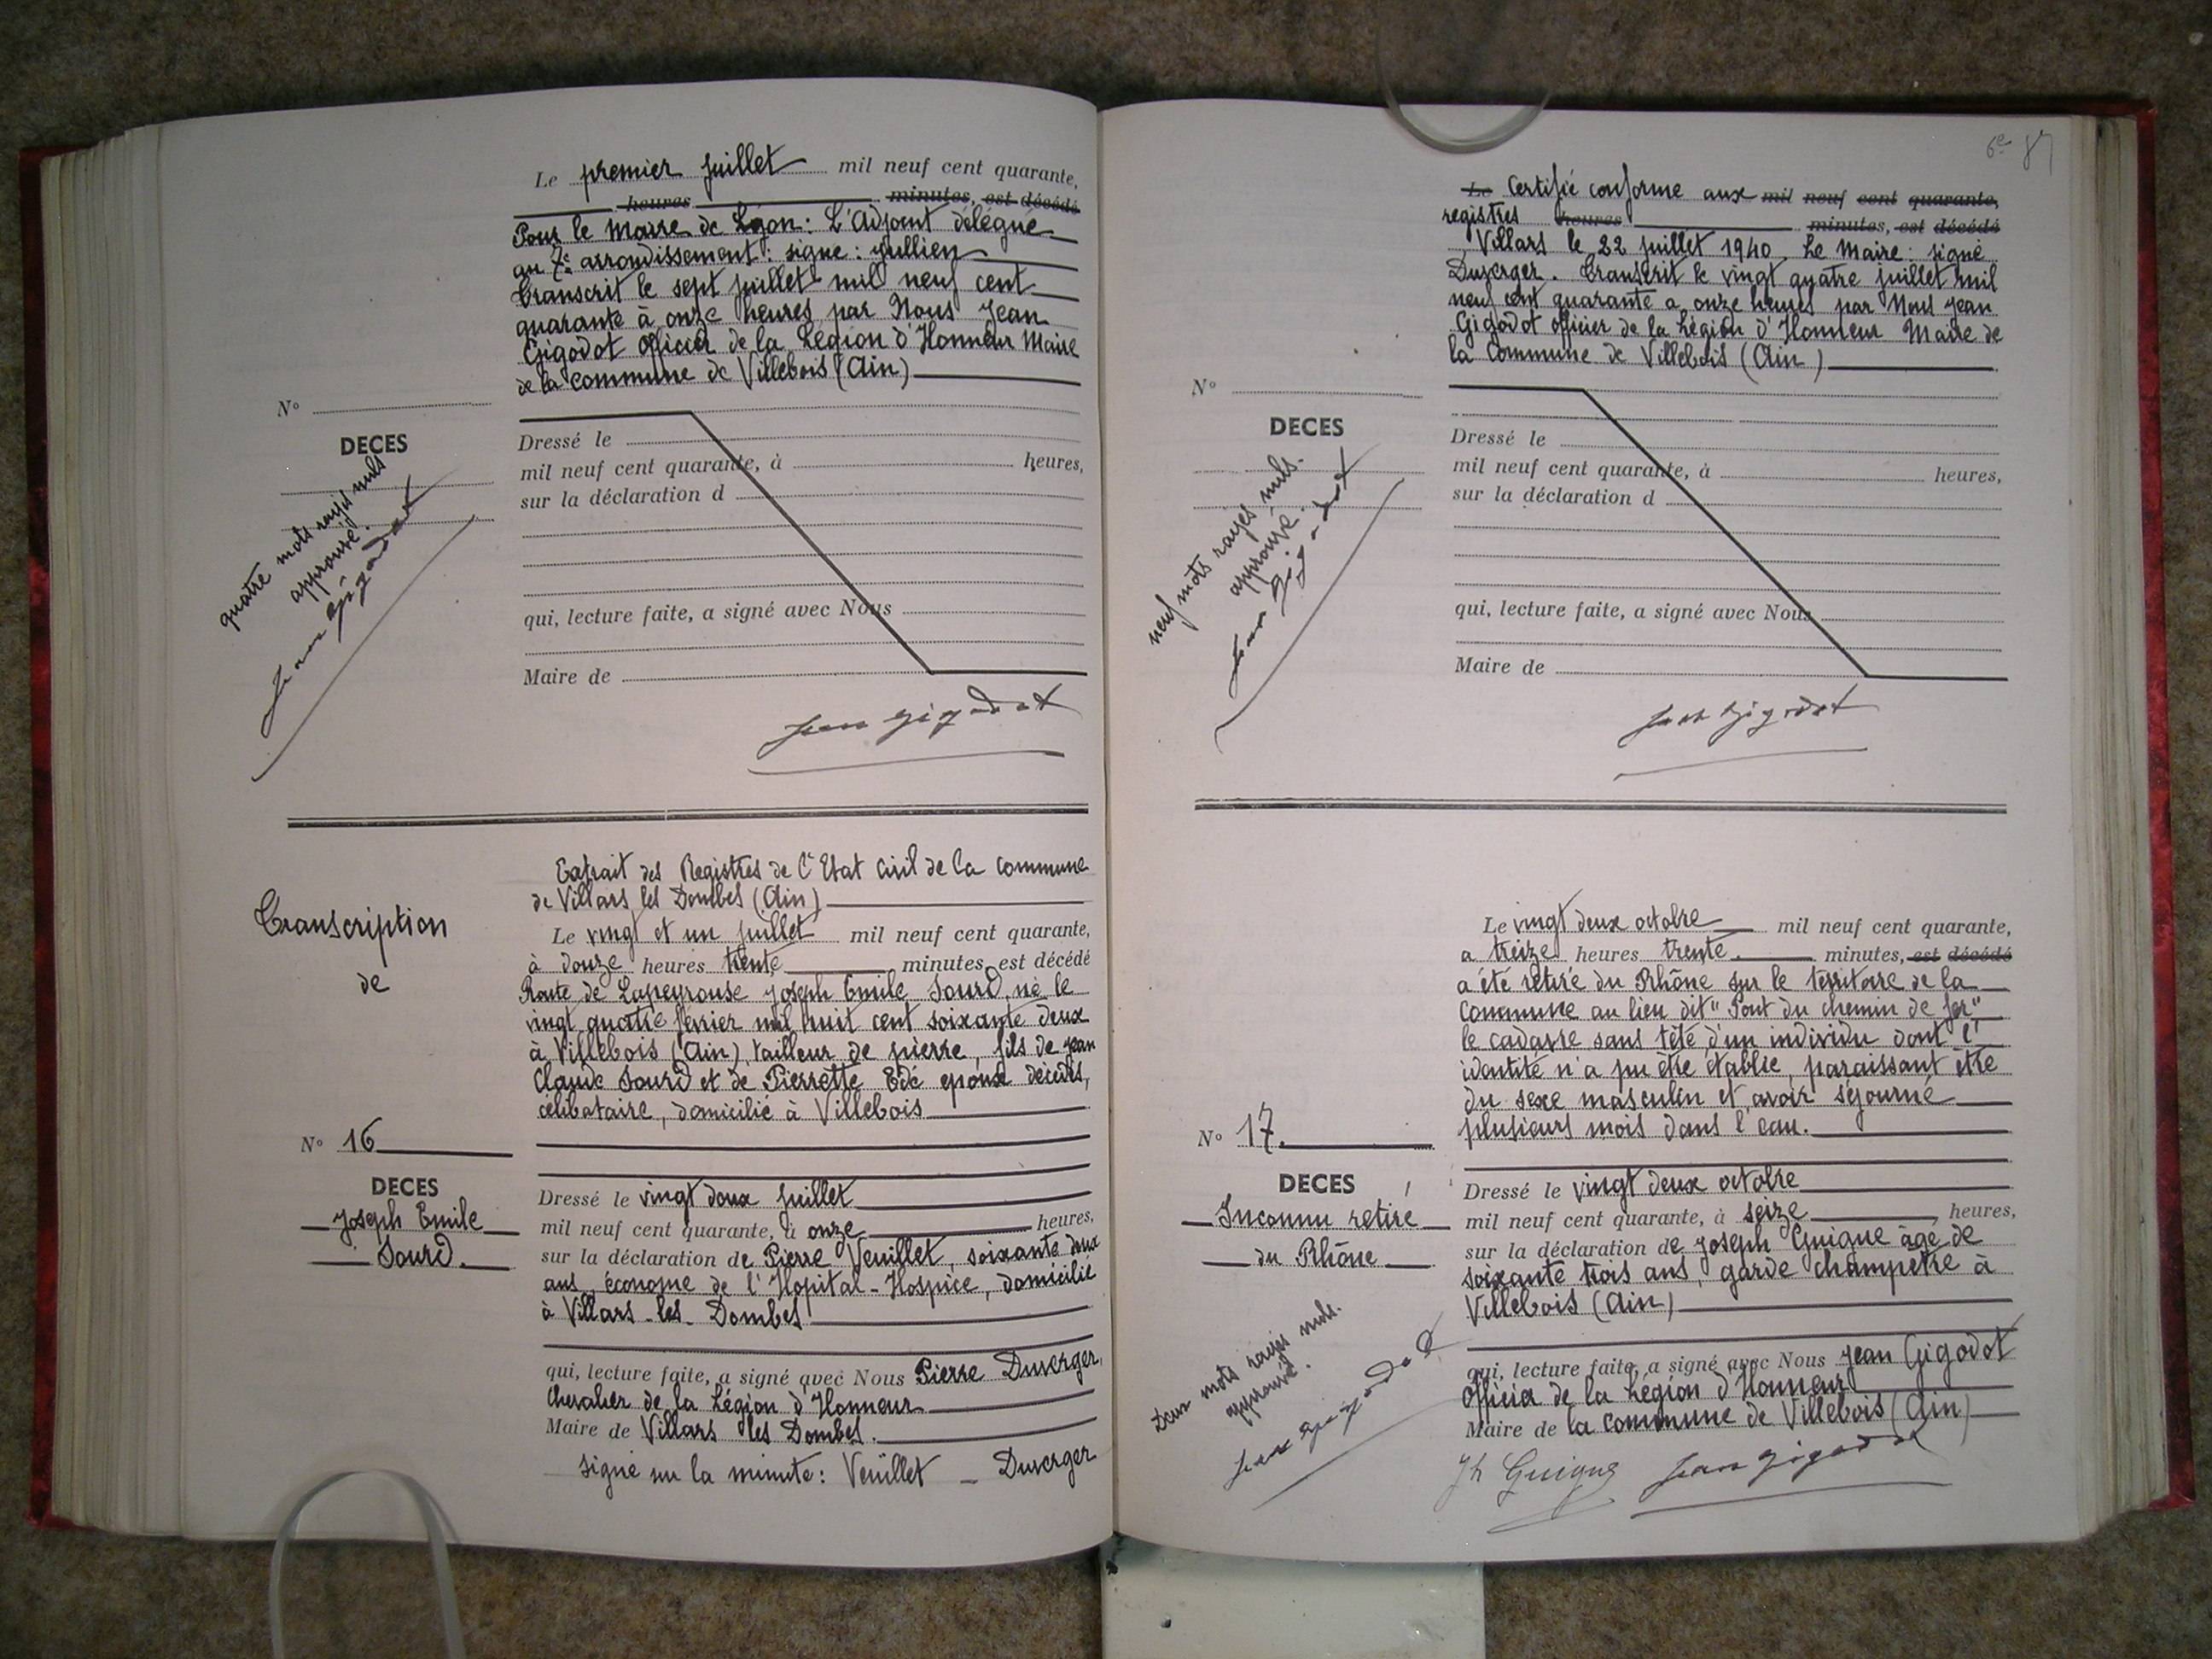 Le premier juillet mil neuf cent quarante,
heures minutes, est décédé
Pour le Maire de Lyon : L'Adjoint délégué
au 7e arrondissement : signé : Jullien
Transcrit le sept juillet mil neuf cent
quarante à onze heures par Nous Jean
Gigodot Officier de la Légion d'Honneur Maire
de la commune de Villebois (Ain)
No
DECES
quatre mots rayés nuls
approuvé.
Jean Gigodot
Dressé le
mil neuf cent quarante, à heures,
sur la déclaration d
qui, lecture faite, a signé avec Nous
Maire de
Jean Gigodot
Extrait des Registres de l'Etat Civil de la commune
de Villars les Dombes (Ain)
Transcription
de
Le vingt et un juillet mil neuf cent quarante,
à douze heures trente minutes est décédé
Route de Lapeyrouse Joseph Emile Sourd, né le
vingt quatre février mil huit cent soixante deux
à Villebois (Ain) tailleur de pierre, fils de Jean
Claude Sourd et de Pierrette époux décédés,
célibataire, domicilié à Villebois
No 16
DECES
Joseph Emile
Sourd.
Dressé le vingt deux juillet
mil neuf cent quarante, à onze heures,
sur la déclaration de Pierre Veuillet, soixante deux
ans, économe de l'Hôpital-Hospice, domicilié
à Villars-les-Dombes
qui, lecture faite, a signé avec Nous Pierre Duverger,
Chevalier de la Légion d'Honneur
Maire de Villars les Dombes.
signé sur la minute : Veuillet - Duverger
6e 87
Le Certifié conforme aux mil neuf cent quarante,
registres heures minutes, est décédé
Villars le 22 juillet 1940 Le Maire : signé
Duverger. Transcrit le vingt quatre juillet mil
neuf cent quarante a onze heures par Nous Jean
Gigodot officier de la Légion d'Honneur Maire de
la Commune de Villebois (Ain)
No
DECES
neuf mots rayés nuls.
approuvé.
Jean Gigodot
Dressé le
mil neuf cent quarante, à heures,
sur la déclaration d
qui, lecture faite, a signé avec Nous
Maire de
Jean Gigodot
Le vingt deux octobre mil neuf cent quarante,
a treize heures trente minutes, est décédé
a été retiré du Rhône sur le territoire de la
commune au lieu dit "Pont du chemin de fer"
le cadavre sans tête d'un individu dont l'
identité n'a pu être établie, paraissant être
du sexe masculin et avoir séjourné
plusieurs mois dans l'eau.
No 17.
DECES
Inconnu retiré
du Rhône
Dressé le vingt deux octobre
mil neuf cent quarante, à seize heures,
sur la déclaration de Joseph Guigue âgé de
soixante trois ans, garde champêtre à
Villebois (Ain)
Deux mots rayés nuls.
approuvé.
Jean Gigodot
qui, lecture faite, a signé avec Nous Jean Gigodot
Officier de la Légion d'Honneur
Maire de la commune de Villebois (Ain)
Jh Guigue Jean Gigodot